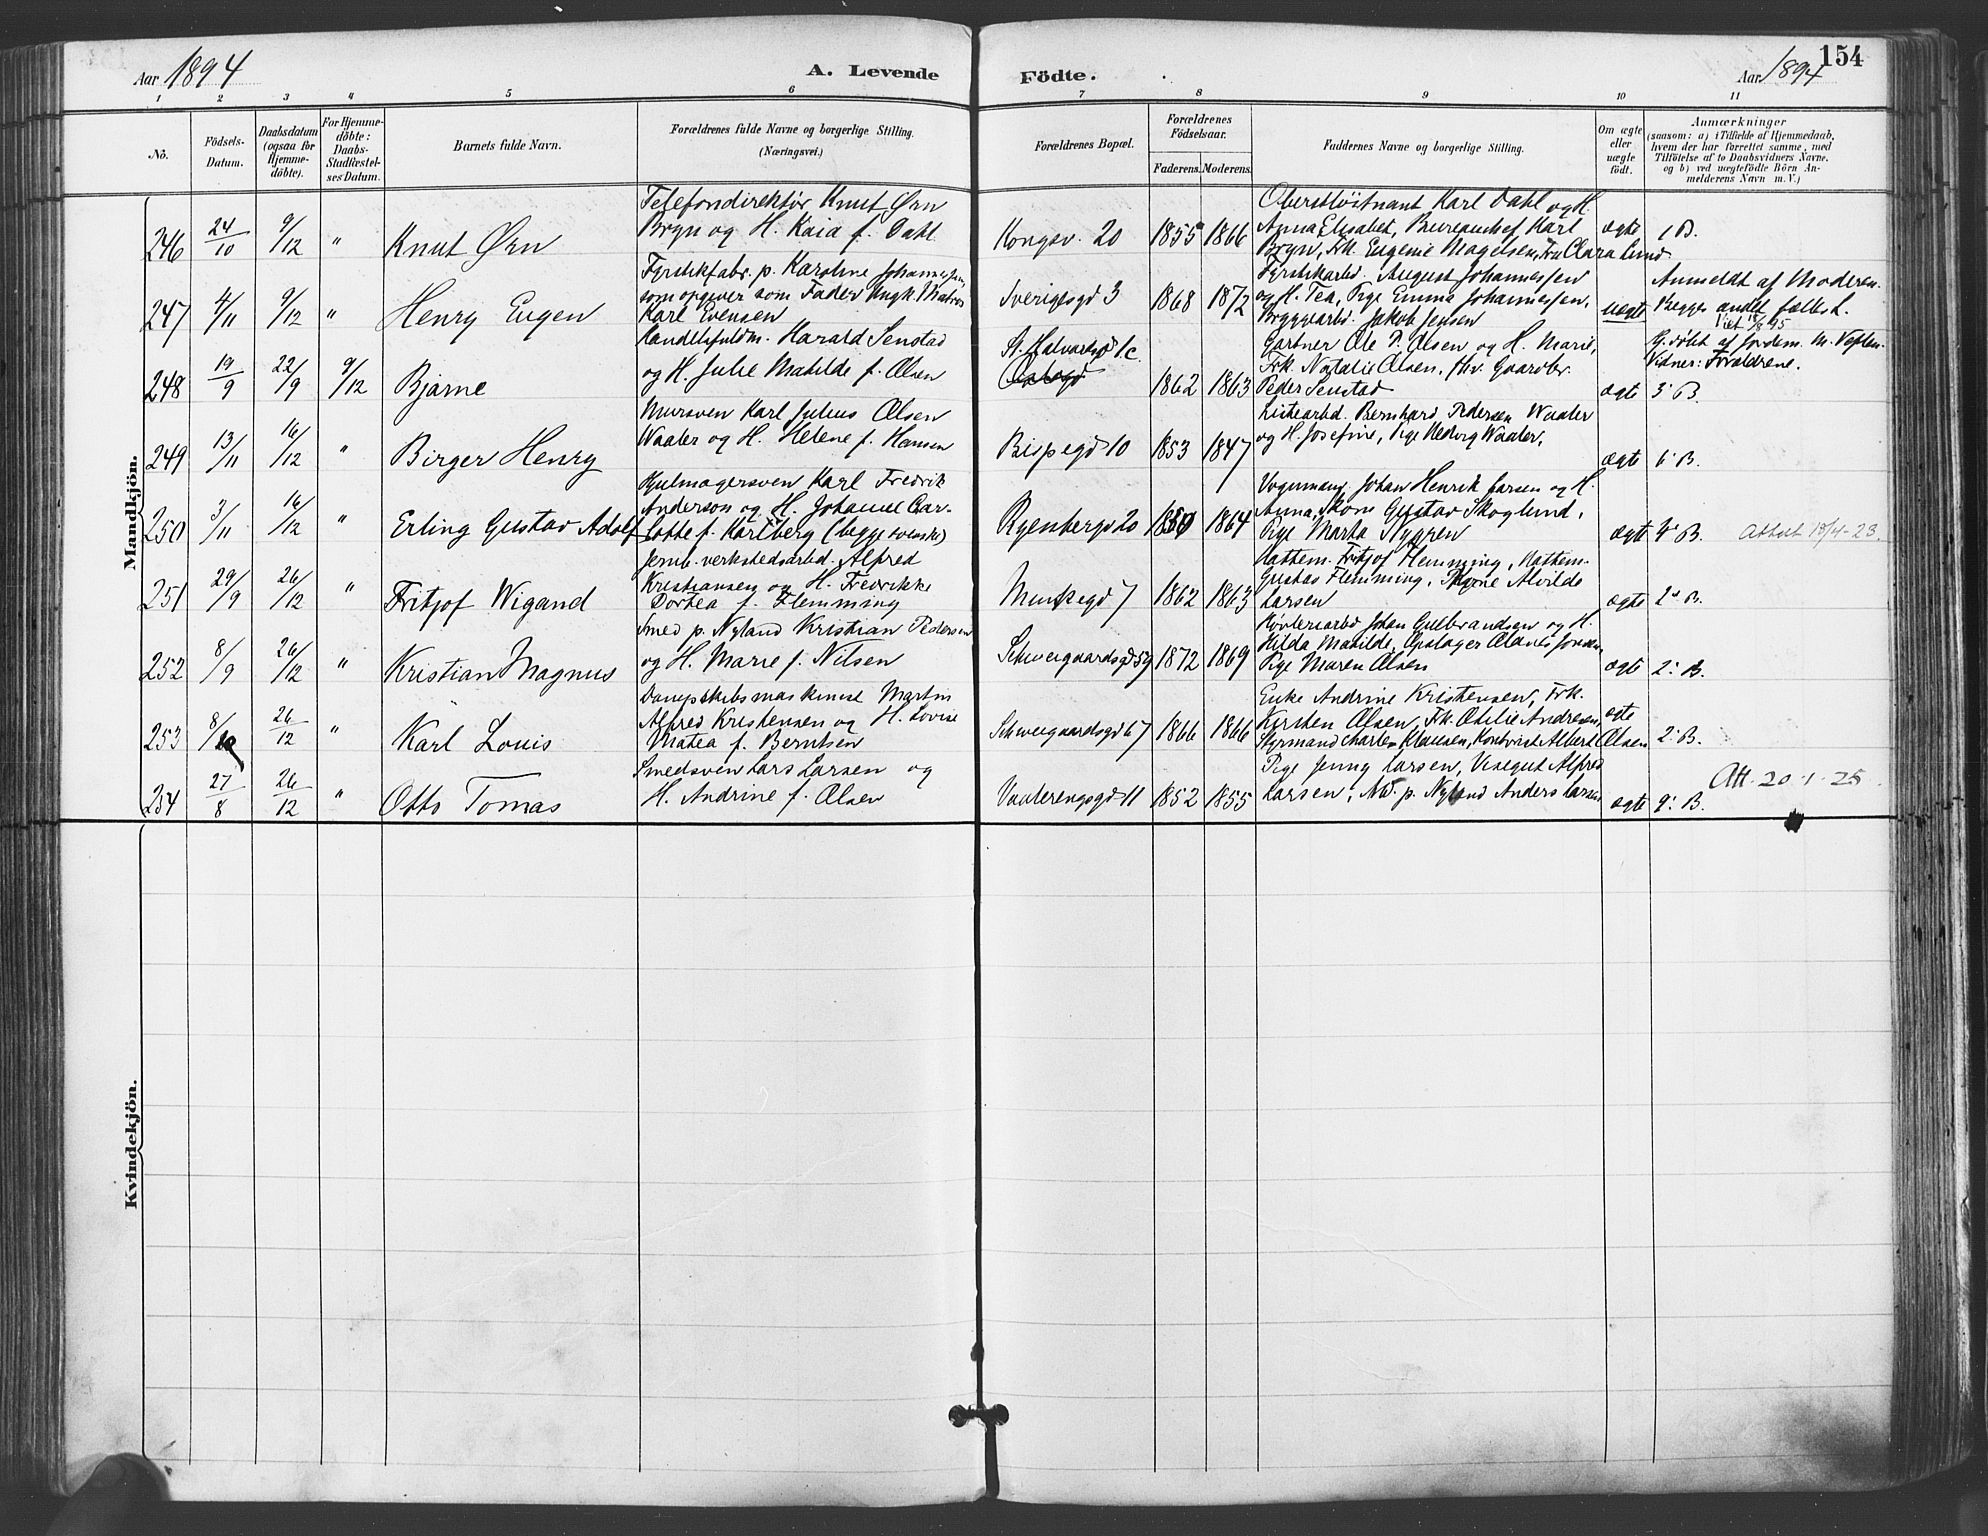 154
Aar 1894
A. Levende Födte.
Aar 1894
1 2 3 4 5 6 7 8 9 10 11
No.
Födsels-
Datum.
Daabsdatum
(ogsaa for
Hjemme-
döbte).
For Hjemme-
döbte:
Daabs-
Stadfæstel-
ses Datum.
Barnets fulde Navn.
Forældrenes fulde Navne og borgerlige Stilling.
(Næringsvei.)
Forældrenes Bopæl.
Forældrenes
Födselsaar.
Faderens. Moderens.
Faddernes Navne og borgerlige Stilling.
Om ægte
eller
uægte
födt.
Anmærkninger
(saasom: a) i Tilfælde af Hjemmedaab,
hvem der har forrettet samme, med
Tilföielse af to Daabsvidners Navne.
og b) ved uægtefödte Börn An-
melderens Navn m. V.)
Mandkjön.
246 24/10 9/12 " Knut Ørn
Telefondirektør Knut Ørn
Bryn og H. Kaia f. Dahl
Kongsv. 20 1855 1866
Oberstløitnant Karl Dahl og H.
Anna Elisabet, Bureauchef Karl
Bryn, Frk. Eugenie Magelsen, Fru Clara Lund
ægte 1 B.
247 4/11 9/12 " Henry Eugen
Fyrstikfabr. p. Karoline Johannessen,
som opgiver som Fader Ungk. Matros
Karl Evensen
Sverigesgd 3 1868 1872
Fyrstikarbd. August Johannessen
og H. Tea, Pige Emma Johannessen,
Bryggearbd. Jakob Jensen
uægte
Anmeldt af Moderen.
Begges andet fælles b.
Viet 18/8 95
248 19/9 22/9 9/12 Bjarne
Handelsfuldm. Harald Senstad
og H. Julie Matilde f. Olsen
St. Halvardsgd 1c.
Oslogd
1862 1863
Gartner Ole P. Olsen og H. Marie,
Frk. Natalie Olsen, fhv. Gaardbr.
Peder Senstad
ægte
Hj.døbt af Jordem. M. Veflen
Vidner: Forældrene.
3' B.
249 13/11 16/12 " Birger Henry
Mursven Karl Julius Olsen
Waaler og H. Helene f. Hansen
Bispegd 10 1853 1847
Listearbd. Bernhard Pedersen Waaler
og H. Josefine, Pige Hedvig Waaler,
ægte 6' B.
250 3/11 16/12 " Erling Gustav Adolf
Hjulmagersven Karl Fredrik
Anderson og H. Johanne Char-
lotte f. Karlberg (begge svenske)
Ryenbergd 20 1860 1864
Vognmand Johan Henrik Larsen og H.
Anna, Skom. Gustav Skoglund,
Pige Marta Nygren
ægte 4' B. Attest 18/4-23.
251 29/9 26/12 " Fritjof Wigand
Jernb.verkstedsarbd. Alfred
Kristiansen og H. Fredrikke
Dortea f. Flemming
Munkegd 7 1862 1863
Hattem. Fritjof Flemming, Hattem.
Gustav Flemming, Alvilde
Larsen
ægte 2' B.
252 8/9 26/12 " Kristian Magnus
Smed p. Nyland Kristian Pedersen
og H. Marie f. Nilsen
Schweigaardsgd 59 1872 1869
Høvleriarbd Johan Gulbrandsen og H.
Hilda Matilde, Opslager
Pige Maren Olsen
ægte 2' B.
253 8/10 26/12 " Karl Louis
Dampskibsmaskinist Martin
Alfred Kristensen og H. Lovise
Matea f. Berntsen
Schweigaardsgd 67 1866 1866
Enke Andrine Kristensen, Frk.
Kirsten Olsen, Frk. Otilie Andresen,
Styrmand Charles Klausen, Kontorist Albert Olsen
ægte 2' B.
254 27/8 26/12 " Otto Tomas
Smedsven Lars Larsen og
H. Andrine f. Olsen
Vaalerengsgd 11 1852 1855
Pige Jenny Larsen, Visegut Alfred
Larsen, Arb. p. Nyland Anders Larsen
ægte 9' B. Att. 20-1-25
Kvindekjön.